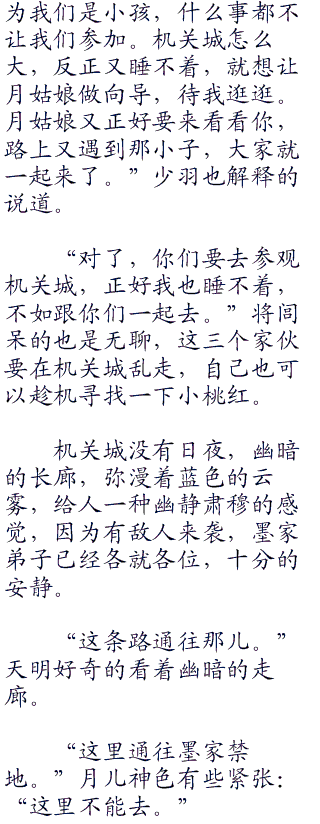 为我们是小孩，什么事都不
让我们参加。机关城怎么
大，反正又睡不着，就想让
月姑娘做向导，待我逛逛。
月姑娘又正好要来看看你，
路上又遇到那小子，大家就
一起来了。”少羽也解释的
说道。
“对了，你们要去参观
机关城，正好我也睡不着，
不如跟你们一起去。”将闾
呆的也是无聊，这三个家伙
要在机关城乱走，自己也可
以趁机寻找一下小桃红。
机关城没有日夜，幽暗
的长廊，弥漫着蓝色的云
雾，给人一种幽静肃穆的感
觉，因为有敌人来袭，墨家
弟子已经各就各位，十分的
安静。
“这条路通往那儿。”
天明好奇的看着幽暗的走
廊。
“这里通往墨家禁
地。”月儿神色有些紧张：
“这里不能去。”